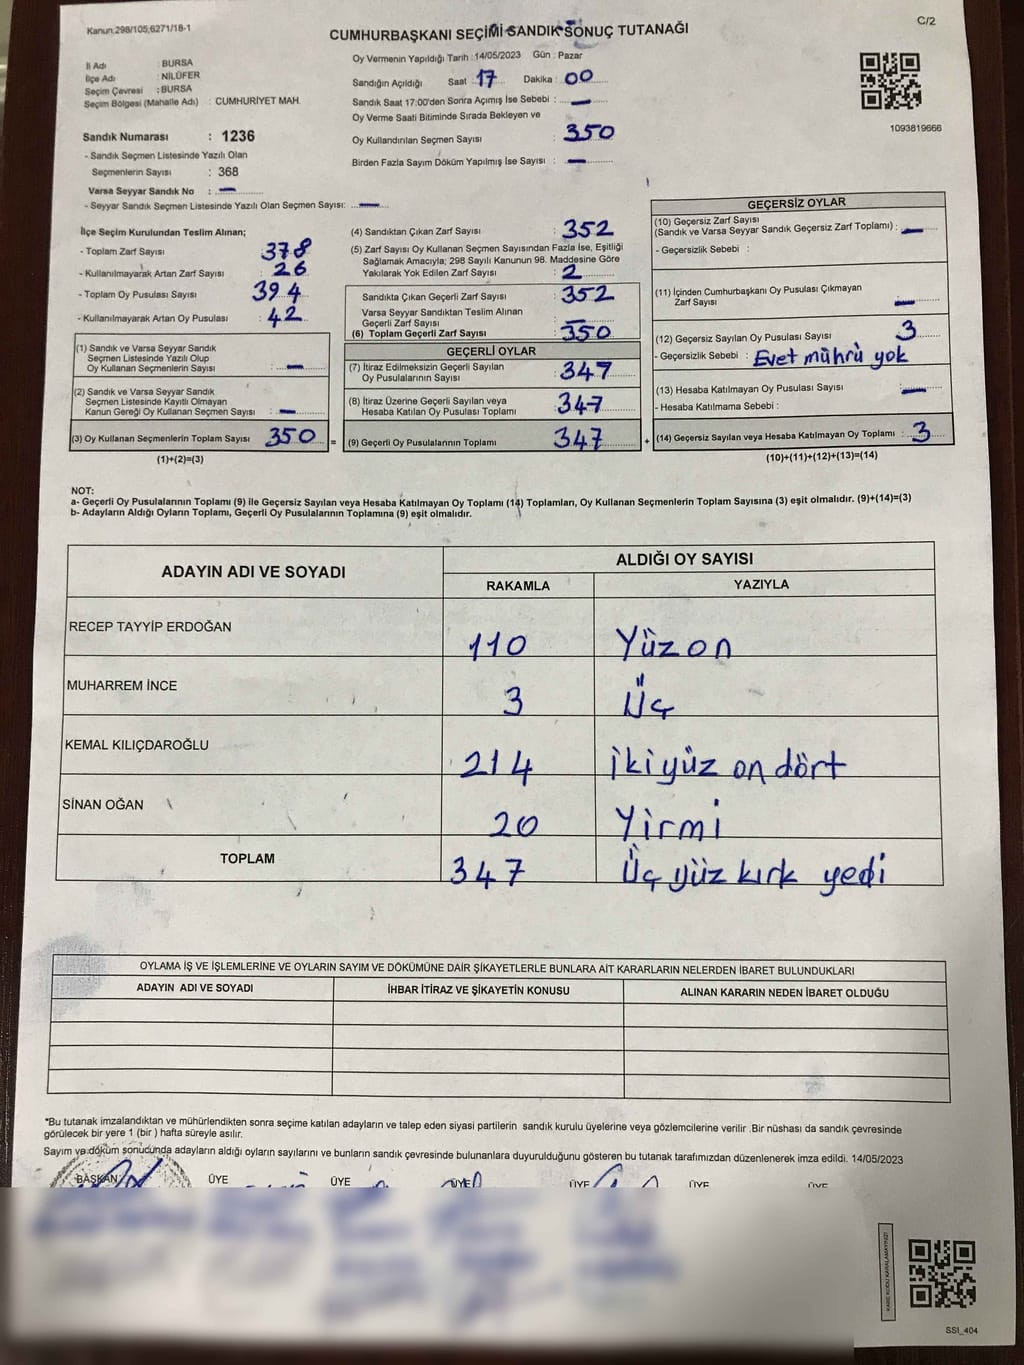 Kanun.298/105,6271/18-1
C/2
CUMHURBAŞKANI SEÇİMİ SANDIK SONUÇ TUTANAĞI
İl Adı : BURSA
İlçe Adı : NİLÜFER
Seçim Çevresi : BURSA
Seçim Bölgesi (Mahalle Adı) : CUMHURİYET MAH.
Sandık Numarası : 1236
- Sandık Seçmen Listesinde Yazılı Olan
Seçmenlerin Sayısı : 368
Varsa Seyyar Sandık No : —
- Seyyar Sandık Seçmen Listesinde Yazılı Olan Seçmen Sayısı: —
Oy Vermenin Yapıldığı Tarih :14/05/2023 Gün : Pazar
Sandığın Açıldığı Saat : 17 Dakika : 00
Sandık Saat 17:00'den Sonra Açımış İse Sebebi : —
Oy Verme Saati Bitiminde Sırada Bekleyen ve
Oy Kullandırılan Seçmen Sayısı : 350
Birden Fazla Sayım Döküm Yapılmış İse Sayısı : —
1093819666
İlçe Seçim Kurulundan Teslim Alınan;
- Toplam Zarf Sayısı : 378
- Kullanılmayarak Artan Zarf Sayısı : 26
- Toplam Oy Pusulası Sayısı : 394
- Kullanılmayarak Artan Oy Pusulası : 42
(1) Sandık ve Varsa Seyyar Sandık
Seçmen Listesinde Yazılı Olup
Oy Kullanan Seçmenlerin Sayısı : —
(2) Sandık ve Varsa Seyyar Sandık
Seçmen Listesinde Kayıtlı Olmayan
Kanun Gereği Oy Kullanan Seçmen Sayısı : —
(3) Oy Kullanan Seçmenlerin Toplam Sayısı : 350 =
(1)+(2)=(3)
(4) Sandıktan Çıkan Zarf Sayısı : 352
(5) Zarf Sayısı Oy Kullanan Seçmen Sayısından Fazla İse, Eşitliği
Sağlamak Amacıyla; 298 Sayılı Kanunun 98. Maddesine Göre
Yakılarak Yok Edilen Zarf Sayısı : 2
Sandıkta Çıkan Geçerli Zarf Sayısı : 352
Varsa Seyyar Sandıktan Teslim Alınan
Geçerli Zarf Sayısı : —
(6) Toplam Geçerli Zarf Sayısı : 350
GEÇERLİ OYLAR
(7) İtiraz Edilmeksizin Geçerli Sayılan
Oy Pusulalarının Sayısı : 347
(8) İtiraz Üzerine Geçerli Sayılan veya
Hesaba Katılan Oy Pusulası Toplamı : 347
(9) Geçerli Oy Pusulalarının Toplamı : 347 +
GEÇERSİZ OYLAR
(10) Geçersiz Zarf Sayısı
(Sandık ve Varsa Seyyar Sandık Geçersiz Zarf Toplamı) : —
- Geçersizlik Sebebi :
(11) İçinden Cumhurbaşkanı Oy Pusulası Çıkmayan
Zarf Sayısı : —
(12) Geçersiz Sayılan Oy Pusulası Sayısı : 3
- Geçersizlik Sebebi : Evet mührü yok
(13) Hesaba Katılmayan Oy Pusulası Sayısı : —
- Hesaba Katılmama Sebebi :
(14) Geçersiz Sayılan veya Hesaba Katılmayan Oy Toplamı : 3
(10)+(11)+(12)+(13)=(14)
NOT:
a- Geçerli Oy Pusulalarının Toplamı (9) ile Geçersiz Sayılan veya Hesaba Katılmayan Oy Toplamı (14) Toplamları, Oy Kullanan Seçmenlerin Toplam Sayısına (3) eşit olmalıdır. (9)+(14)=(3)
b- Adayların Aldığı Oyların Toplamı, Geçerli Oy Pusulalarının Toplamına (9) eşit olmalıdır.
ADAYIN ADI VE SOYADI ALDIĞI OY SAYISI
RAKAMLA YAZIYLA
RECEP TAYYİP ERDOĞAN 110 Yüz on
MUHARREM İNCE 3 Üç
KEMAL KILIÇDAROĞLU 214 ikiyüz on dört
SİNAN OĞAN 20 Yirmi
TOPLAM 347 Üç yüz kırk yedi
OYLAMA İŞ VE İŞLEMLERİNE VE OYLARIN SAYIM VE DÖKÜMÜNE DAİR ŞİKAYETLERLE BUNLARA AİT KARARLARIN NELERDEN İBARET BULUNDUKLARI
ADAYIN ADI VE SOYADI İHBAR İTİRAZ VE ŞİKAYETİN KONUSU ALINAN KARARIN NEDEN İBARET OLDUĞU
*Bu tutanak imzalandıktan ve mühürlendikten sonra seçime katılan adayların ve talep eden siyasi partilerin sandık kurulu üyelerine veya gözlemcilerine verilir .Bir nüshası da sandık çevresinde
görülecek bir yere 1 (bir ) hafta süreyle asılır.
Sayım ve döküm sonucunda adayların aldığı oyların sayılarını ve bunların sandık çevresinde bulunanlara duyurulduğunu gösteren bu tutanak tarafımızdan düzenlenerek imza edildi. 14/05/2023
BAŞKAN ÜYE ÜYE ÜYE ÜYE ÜYE ÜYE
KARE KODU KARALAMAYINIZ!
SSI_404